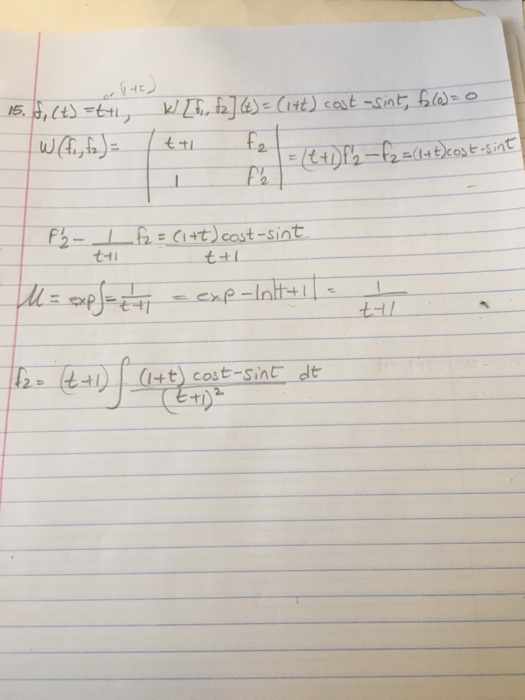 or (1+t)
15. f₁(t) = t+1, W[f₁, f₂](t) = (1+t) cost - sint, f₂(0) = 0
W(f₁, f₂) = | t+1 f₂ | = (t+1)f'₂ - f₂ = (1+t)cost-sint
| 1 f'₂ |
f'₂ - 1/(t+1) f₂ = ((1+t)cost-sint)/(t+1)
M = exp∫-1/(t+1) = exp-ln|t+1| = 1/(t+1)
f₂ = (t+1) ∫ ((1+t) cost-sint)/(t+1)² dt